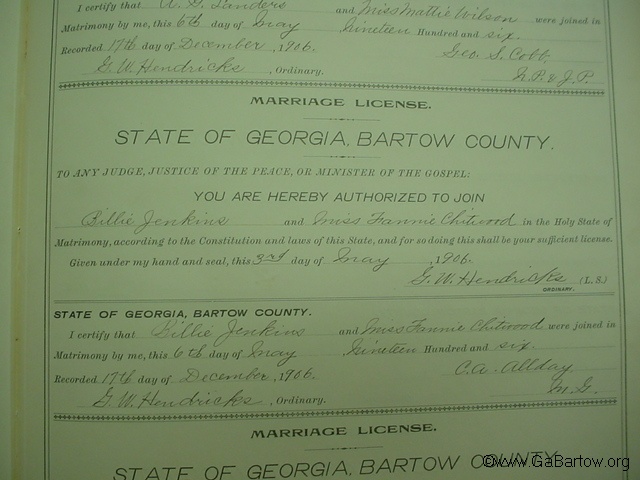 I certify that W. D. Sanders and Miss Mattie Wilson were joined in
Matrimony by me, this 6th day of May Nineteen Hundred and six.
Recorded 17th day of December, 1906. Geo. S. Cobb,
G. W. Hendricks, Ordinary. N.P. & J.P.
MARRIAGE LICENSE.
STATE OF GEORGIA, BARTOW COUNTY.
TO ANY JUDGE, JUSTICE OF THE PEACE, OR MINISTER OF THE GOSPEL:
YOU ARE HEREBY AUTHORIZED TO JOIN
Billie Jenkins and Miss Fannie Chitwood in the Holy State of
Matrimony, according to the Constitution and laws of this State, and for so doing this shall be your sufficient license.
Given under my hand and seal, this 3rd day of May, 1906.
G. W. Hendricks (L. S.)
ORDINARY.
STATE OF GEORGIA, BARTOW COUNTY.
I certify that Billie Jenkins and Miss Fannie Chitwood were joined in
Matrimony by me, this 6th day of May Nineteen Hundred and six.
Recorded 17th day of December, 1906. C. A. Allday,
G. W. Hendricks, Ordinary. M. G.
MARRIAGE LICENSE.
STATE OF GEORGIA, BARTOW COUNTY.
©www.GaBartow.org